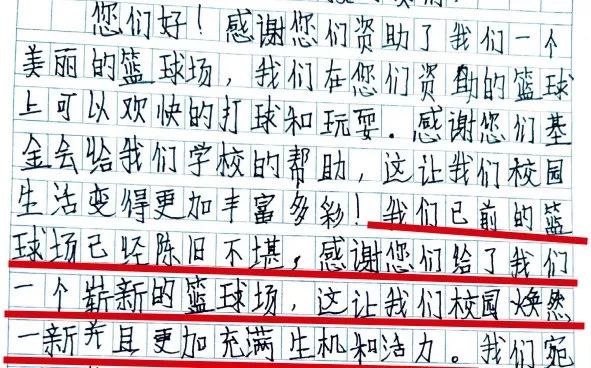 您们好！感谢您们资助了我们一个
美丽的篮球场，我们在您们资助的篮球
上可以欢快的打球和玩耍。感谢您们基
金会给我们学校的帮助，这让我们校园
生活变得更加丰富多彩！我们已前的篮
球场已经陈旧不堪，感谢您们给了我们
一个崭新的篮球场，这让我们校园焕然
一新并且更加充满生机和活力。我们宛